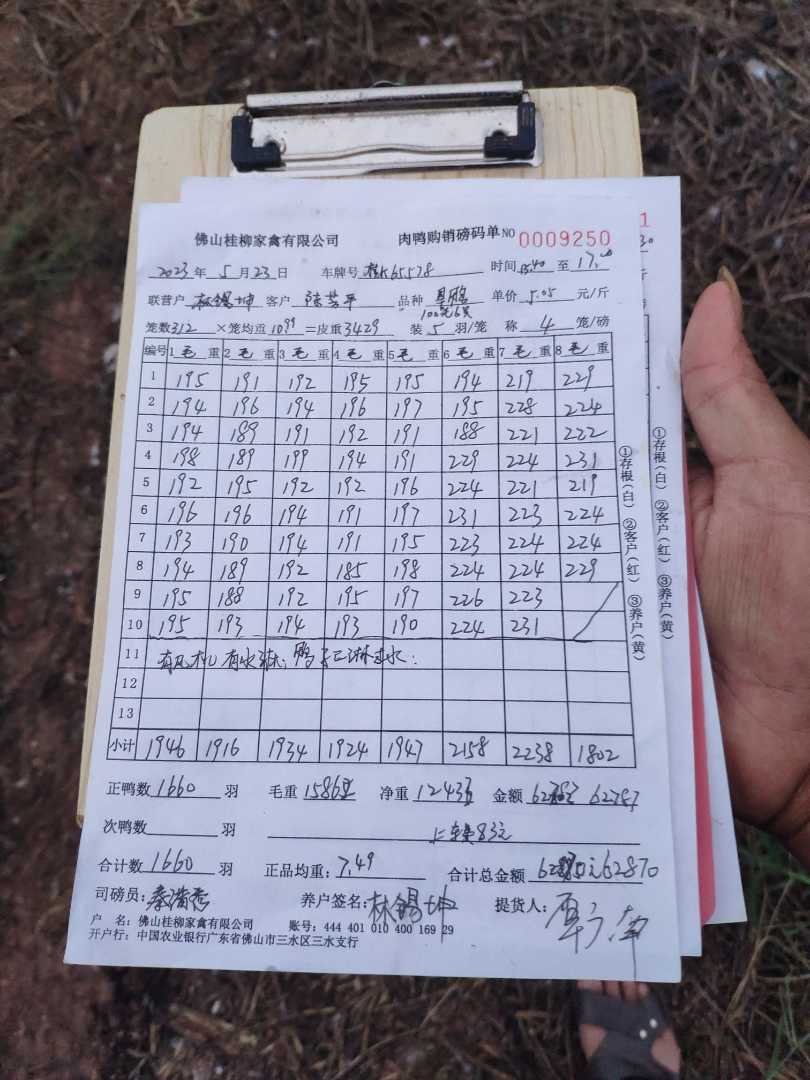 佛山桂柳家禽有限公司 肉鸭购销磅码单 NO 0009250
2023年 5月23日 车牌号 65578 时间 15:40 至 17:00
联营户 林锡坤 客户 品种 单价 5.05 元/斤
笼数312 ×笼均重 1099 =皮重3429 装 5 羽/笼 称 4 笼/磅
编号 1 毛 重 2 毛 重 3 毛 重 4 毛 重 5 毛 重 6 毛 重 7 毛 重 8 毛 重
1 195 191 192 195 195 194 219 229
2 194 196 194 196 197 195 228 224
3 194 189 191 192 191 188 221 222
4 198 189 199 194 191 229 224 231
5 192 195 192 192 196 224 221 219
6 196 196 194 191 197 231 223 224
7 193 190 194 191 195 223 224 224
8 194 189 192 185 198 224 224 229
9 195 188 192 195 197 226 223
10 195 193 194 193 190 224 231
11 有风机 有水淋; 鸭子已淋过水:
12
13
小计 1946 1916 1934 1924 1947 2158 2238 1802
正鸭数 1660 羽 毛重 15865 净重 12433 金额 62787
次鸭数 羽 83元
合计数 1660 羽 正品均重: 7.49 合计总金额 62870
司磅员: 养户签名: 林锡坤 提货人:
户 名: 佛山桂柳家禽有限公司 账号: 444 401 010 400 169 29
开户行: 中国农业银行广东省佛山市三水区三水支行
①存根(白) ②客户(红) ③养户(黄)
①存根(白) ②客户(红) ③养户(黄)